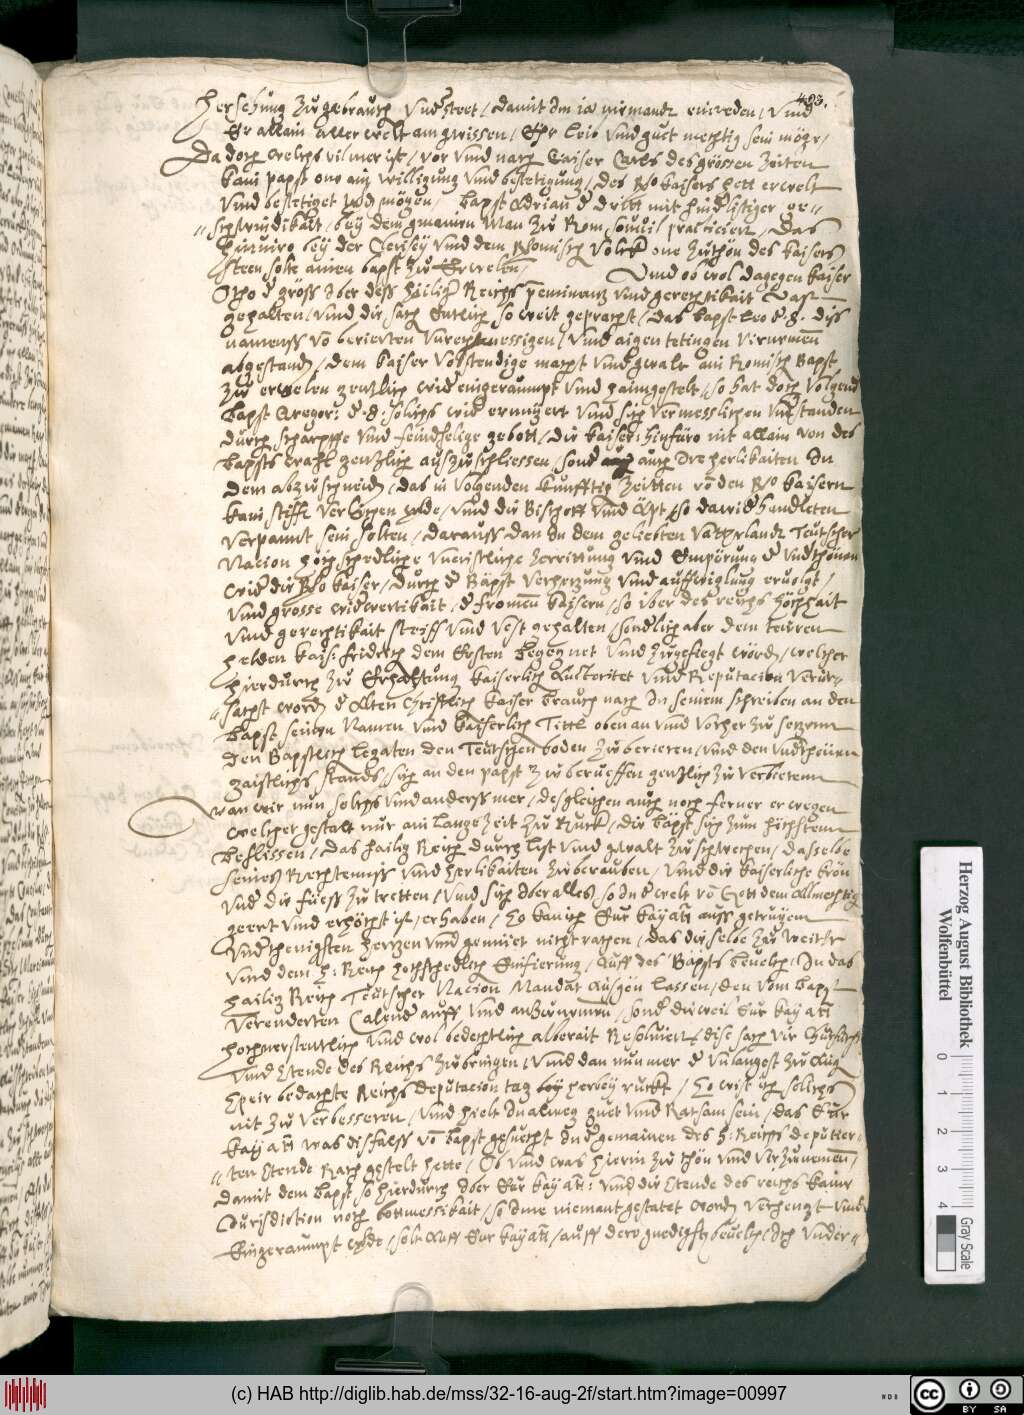 493.
hersehung zu gebraucht und steet / damit Im ja niemandt einreden / und
Er allain aller welt am gwissen, Ehr leib und guet mechtig sein möge /
Da doch welchs vil mer ist / vor und nach Caiser Carls des grössen Zeiten
kain papst one ain willigung und bestetigung / des Ro kaisers hett erwelt
und bestetiget werden mögen / bapst Adrian der dritt mit hinderlistiger ge=
=schwindikait / bey dem gmainen Man zu Rom sovil practiciert / Das
hinuiro bey der Clerisey und dem Romischen volck one zuthon des kaisers
steen solte ainen bapst zu Erwelen / Unnd ob wol dagegen kaiser
Otho der gröss ober dess hailigen Reichs preminentz und gerechtikait vast
gehalten / und die sach Entlich so weit gepracht / das bapst Leo der 8. diss
namenss von berierten unrechtmessigen / und aigentetigen virnemen
abgestanden / dem kaiser volstendige macht und gwalt ain Romisch Bapst
zu erwelen gentzlich wider eingeraumpt und haimgestelt / so hat doch volgend
bapst Gregor: der 8: solchs wider ernuyert und sich vermesslichen understanden
durch scharpffe und feindselige gebott / die kaiser hinfüro nit allain von des
bapsts wahl gentzlich auszuschliessen / sonder auch Ire herlikaiten In
dem abzuschneiden / das in volgenden kunfftig Zeitten von den Ro kaisern
kain stifft verlihen wurde / und die Bischoff und Äpt / so dawider handleten
verpannt sein solten / darauss dan In dem geliebten vatterlandt Teutscher
Nacion hoch schedliche Zerrittung und Empörung der underthonen
wider die Ro kaiser / durch der Bäpst verhetzung und auffwiglung ervolgt /
und grosse widerwertikait / der fromen kaisern / so iber des reichs hochhait
und gerechtikait steiff und vest gehalten / sonderlich aber dem teuren
helden kais: fridrich dem Ersten begegnet und zugefiegt worden / welcher
hierdurch zu Erhaltung kaiserlich Auctoritet und Reputacion verur=
=sacht worden der Alten Christlich kaiser brauch nach In seinem schreiben an den
bapst seinen Namen und kaiserlich Tittl oben an und vorher zu setzenn
den Bapstlich Legaten den Teutschen boden zu berieren / und den underthonen
gaistlichs stands / sich an den papst zu berueffen gentzlich zu verbieten
wan wir nun solchs und anderss mer / desgleichen auch noch ferner erwegen
welcher gestalt nur ain lange Zeit zu ruckh / die bäpst sich zum höchsten
beflissen / das hailig Reich durch list und gwalt zu schwechen / dasselbe
seiner Rechtens und herlikaiten zu berauben / und die kaiserliche kron
under die füess zu tretten / und sich ober alles / so In der welt von Gott dem Allmechtig
geert und erhöcht ist / erhaben / So kan ich Eur kay mt auss getruyem
underthenigsten hertzen und gemiet nicht rathen / das dieselbe zu weiter
und dem h: Reich hochschedlich Einfierung / Auff des Bapsts bevelch / In das
hailig Reich Teutscher Nacion Mandat Ausgen lassen / den vom bapst
verenderten Calender auff und anzunemen / sonder dieweil Eur kay mt
hochverstentlich und wol bedechtlich alberait Resolviert / dise sach vir Churfursten
und Stende des Reichs zu bringen / und dan nunmer der unlangst zu Aug
Speir bedachte Reichs Deputacion tag bey herbey ruckt / So wist ich solichs
nit zu verbesseren / und hielt In alweg guet und Ratsam sein / das Eur
kay mt was disfalss von bapst gesuecht Inn gemainen des h: Reichs deputter=
=ten Stende Rath gestelt hette / Ob und was hierin zu thon und virzunemen /
damit dem bapst so hierdurch ober Eur kay mt: und die Stende des reichs kaine
Jurisdiction noch bottmessikait / so Ime niemant gestatet worden verhengt und
Eingeraumpt wurde / solt Auff Eur kay mt / auff dero gnedigst bevelch / Ich under=
Herzog August Bibliothek
Wolfenbüttel
0 1 2 3 4
Gray Scale
(c) HAB http://diglib.hab.de/mss/32-16-aug-2f/start.htm?image=00997
WDB
cc BY SA